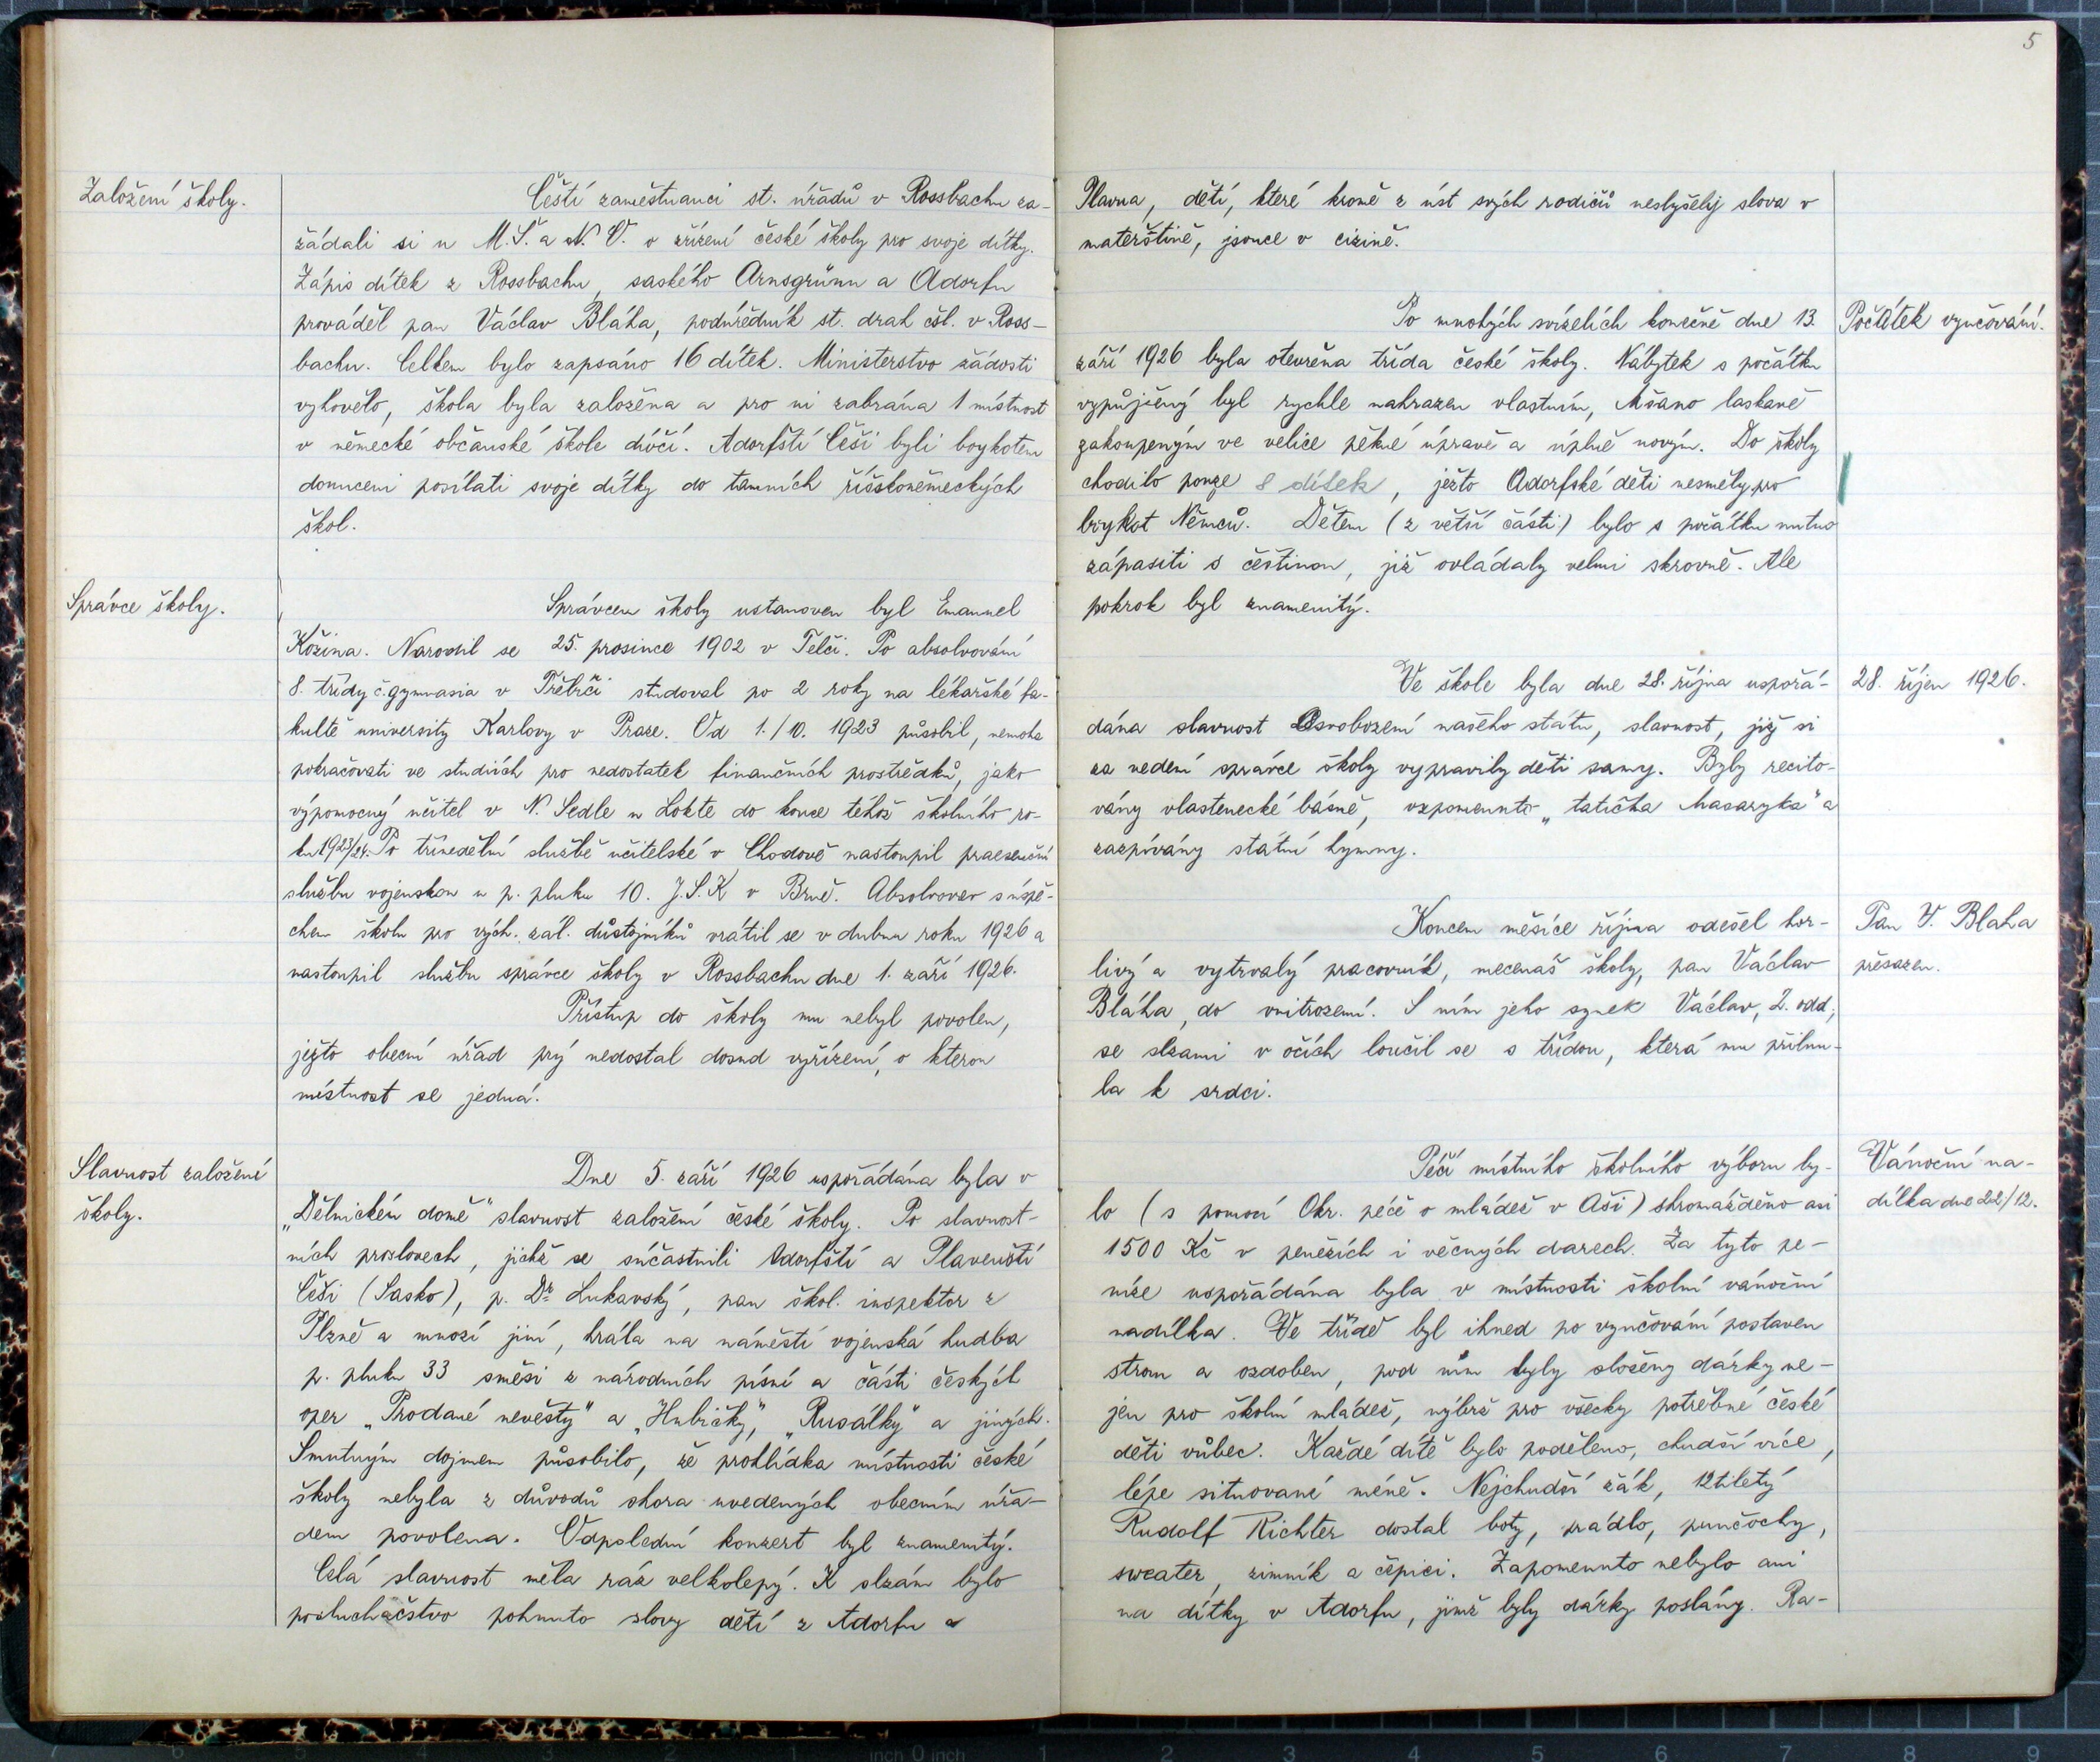 Založení školy.
Čeští zaměstnanci st. úřadů v Rossbachu za-
žádali si u M.Š. a N. O. o zřízení české školy pro svoje dítky.
Zápis dítek z Rossbachu, saského Arnsgrünu a Adorfu
prováděl pan Václav Bláha, podúředník st. drah čsl. v Ross-
bachu. Celkem bylo zapsáno 16 dítek. Ministerstvo žádosti
vyhovělo, škola byla založena a pro ni zabrána 1 místnost
v německé občanské škole dívčí. Adorfští Češi byli boykotem
donuceni posílati svoje dítky do tamních říšskoněmeckých
škol.
Správce školy.
Správcem školy ustanoven byl Emanuel
Kožina. Narodil se 25. prosince 1902 v Telči. Po absolvování
8. třídy č. gymnasia v Třebíči studoval po 2 roky na lékařské fa-
kultě university Karlovy v Praze. Od 1./10. 1923 působil, nemoha
pokračovati ve studiích pro nedostatek finančních prostředků, jako
výpomocný učitel v N. Sedle u Lokte do konce téhož školního ro-
ku 1923/24. Po třínedělní službě učitelské v Chodově nastoupil praesenční
službu vojenskou u p. pluku 10. J.S.K v Brně. Absolvovav s úspě-
chem školu pro vých. zál. důstojníků vrátil se v dubnu roku 1926 a
nastoupil službu správce školy v Rossbachu dne 1. září 1926.
Přístup do školy mu nebyl povolen,
ježto obecní úřad prý nedostal dosud vyřízení, o kterou
místnost se jedná.
Slavnost založení
školy.
Dne 5. září 1926 uspořádána byla v
„Dělnickém domě" slavnost založení české školy. Po slavnost-
ních proslovech, jichž se súčastnili Adorfští a Plavenští
Češi (Sasko), p. Dr Lukavský, pan škol. inspektor z
Plzně a mnozí jiní, hrála na náměstí vojenská hudba
p. pluku 33 směsi z národních písní a části českých
oper „Prodané nevěsty" a „Hubičky", „Rusálky" a jiných.
Smutným dojmem působilo, že prohlídka místnosti české
školy nebyla z důvodů shora uvedených obecním úřa-
dem povolena. Odpolední konzert byl znamenitý.
Celá slavnost měla ráz velkolepý. K slzám bylo
posluchačstvo pohnuto slovy dětí z Adorfu a
5
Plavna, dětí, které kromě z úst svých rodičů neslyšely slova v
mateřštině, jsouce v cizině.
Počátek vyučování.
Po mnohých svízelích konečně dne 13.
září 1926 byla otevřena třída české školy. Nábytek s počátku
vypůjčený byl rychle nahrazen vlastním, Mšano laskavě
zakoupeným ve velice pěkné úpravě a úplně novým. Do školy
chodilo pouze 8 dítek, ježto Adorfské děti nesměly pro
boykot Němců. Dětem (z větší části) bylo s počátku nutno
zápasiti s češtinou, již ovládaly velmi skrovně. Ale
pokrok byl znamenitý.
28. říjen 1926.
Ve škole byla dne 28. října uspořá-
dána slavnost Osvobození našeho státu, slavnost, již si
za vedení správce školy vypravily děti samy. Byly recito-
vány vlastenecké básně, vzpomenuto „tatíčka Masaryka" a
zazpívány státní hymny.
Pan V. Blaha
přesazen.
Koncem měsíce října odešel hor-
livý a vytrvalý pracovník, mecenáš školy, pan Václav
Bláha, do vnitrozemí. S ním jeho synek Václav, 2. odd.,
se slzami v očích loučil se s třídou, která mu přilnu-
la k srdci.
Vánoční na-
dílka dne 22/12.
Péčí místního školního výboru by-
lo (s pomocí Okr. péče o mládež v Aši) shromážděno asi
1500 Kč v penězích i věcných darech. Za tyto pe-
níze uspořádána byla v místnosti školní vánoční
nadílka. Ve třídě byl ihned po vyučování postaven
strom a ozdoben, pod ním byly složeny dárky ne-
jen pro školní mládež, nýbrž pro všecky potřebné české
děti vůbec. Každé dítě bylo poděleno, chudší více,
lépe situované méně. Nejchudší žák, 12tiletý
Rudolf Richter dostal boty, prádlo, punčochy,
sweater, zimník a čepici. Zapomenuto nebylo ani
na dítky v Adorfu, jimž byly dárky poslány. Ra-
7 6 5 4 3 2 1 inch 0 inch 1 2 3 4 5 6 7 8 9